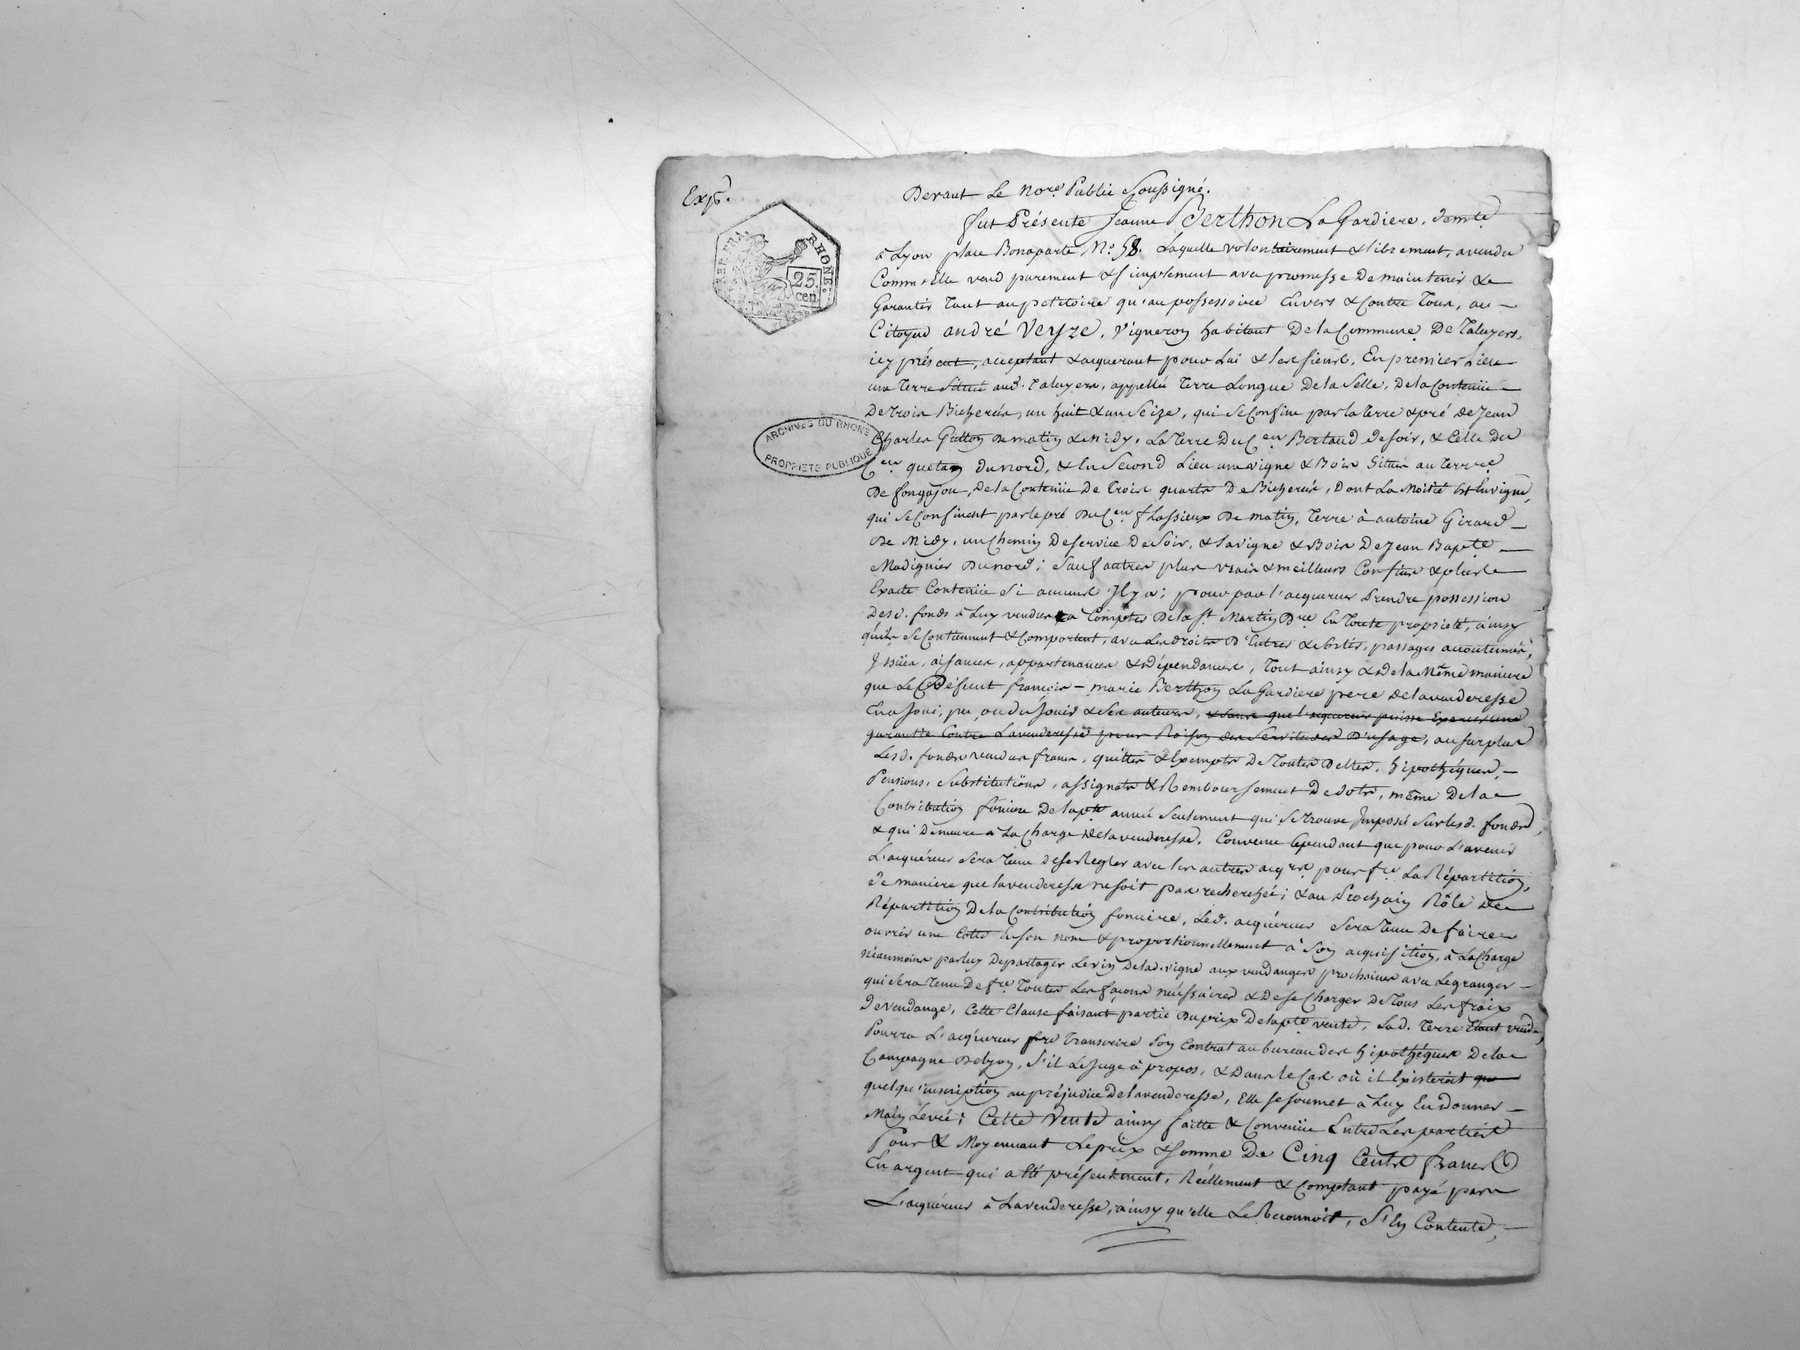 Exp.
Devant Le Nore. Public Soussigné.
fut Présente Jeanne Berthon La Gardiere, demte
à Lyon place Bonaparte No. 58. Laquelle volontairement & librement, a vendu
Comme Elle vend purement & simplement avec promesse de maintenir &
Garantir tant au petitoire qu'au possessoire Envers & Contre Tous, au
Citoyen andré Veyze, Vigneron habitant de la Commune De Taluyers,
icy présent, acceptant & acquerant pour Lui & les siens. En premier Lieu
une Terre Située aud. Taluyers, appellée Terre Longue de la Selle, De la Contenüe
De trois Bicherées, un huit & un Seize, qui se Confine par la terre & pré de Jean
Charles Gutton de matin & midy, La terre du Cen Bertaud de soir, & Celle du
Cen quetan du nord, & En Second Lieu une vigne & Bois Situés au Terre
De fongajou, de la Contenüe De trois quarts de Bicherée, dont La Moitié Est En vigne,
qui se Confinent par le pré du Cen flassieux de matin, terre à antoine Girard
de Midy, un Chemin De service de Soir, & la vigne & Bois de Jean Bapte
Madignier du nord; Sauf autres plus vrais & meilleurs Confins & plus
Exacte Contenüe Si aucune Il y a; pour par l'acquereur Prendre possession
desd. fonds à Luy vendus a Compter de la St. Martin En toute propriété, ainsy
qu'ils se Contiennent & Comportent, avec Les droits D'Entrées & sorties, passages accoutumés,
Issües, aisances, appartenances & dépendances, Tout ainsy & de la Même maniere
que Le Cen Défunt françois-marie Berthon La Gardiere pere de la venderesse
En a joui, pu, ou du Jouir & Ses auteurs, & sans que l'acquereur puisse Exercer une
garantie Contre La venderesse pour Raison des Servitudes D'usage, au surplus
Lesd. fonds vendus francs, quittes & Exempts de toutes dettes, hipothéques,
Pensions, Substitutions, assignats & Remboursement de dots, même de la
Contribution fonciere de la pte année Seulement qui Se trouve Imposée sur lesd. fonds,
& qui demeure à La Charge de la venderesse, Convenu Cependant que pour L'avenir
L'acquéreur Sera tenu de se Regler avec les autres acqrs pour fre La Répartition,
de maniere que la venderesse ne soit pas recherchée; & au Prochain Rôle de
Répartition de la Contribution fonciere, Led. acquéreur Sera tenu De faire
ouvrir une Cotte En son nom & proportionnellement à Son acquisition, à La Charge
néanmoins par luy de partager Le vin de lad. vigne aux vendanges prochaines avec Le granger
qui Sera tenu de fre toutes Les façons nécessaires & de se Charger de tous Les fraix
de vendange, Cette Clause faisant partie du prix de la pte vente, Lad. terre
Pourra L'acquéreur fre transcrire Son Contrat au bureau des hipothéques de la
Campagne de Lyon, S'il Le Juge à propos, & dans le Cas où il Existeroit que
quelqu'inscription au préjudice de la venderesse, Elle se soumet à Luy En donner
Main Levée; Cette Vente ainsy faitte & Convenüe Entre Les parties
Pour & Moyennant Le prix & Somme de Cinq Cents francs
En argent qui a Eté présentement, Réellement & Comptant payé par
L'acquéreur à La venderesse, ainsy qu'elle Le Reconnoit, S'En Contente,
REP. FRA.
RHONE.
25
cen
ARCHIVES DU RHONE
PROPRIETE PUBLIQUE